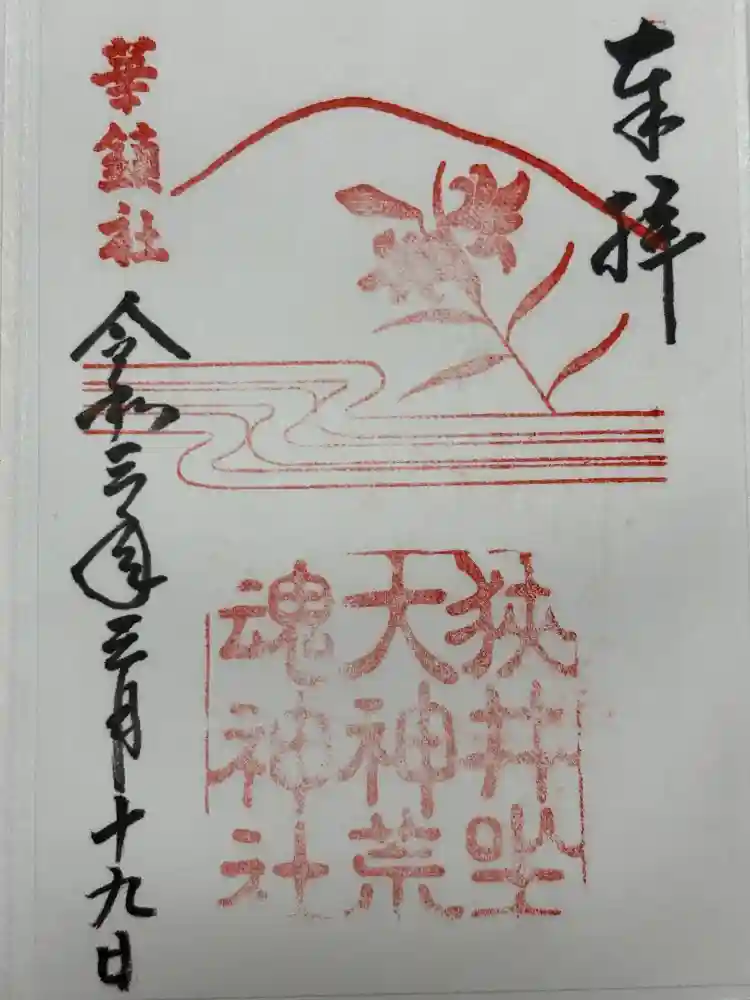 奉拝
狭井坐
大神荒
魂神社
華鎮社
令和三年三月十九日